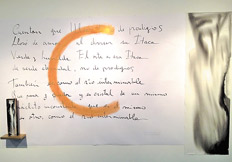 Cuentan que de prodigios
Lloró de amor al divisar su Itaca
Verde y humilde. El arte es esa Itaca
de verde eternidad, no de prodigios.
También es como el río interminable
Que pasa y queda y es cristal de un mismo
inconstante, que es el mismo
es otro como el río interminable